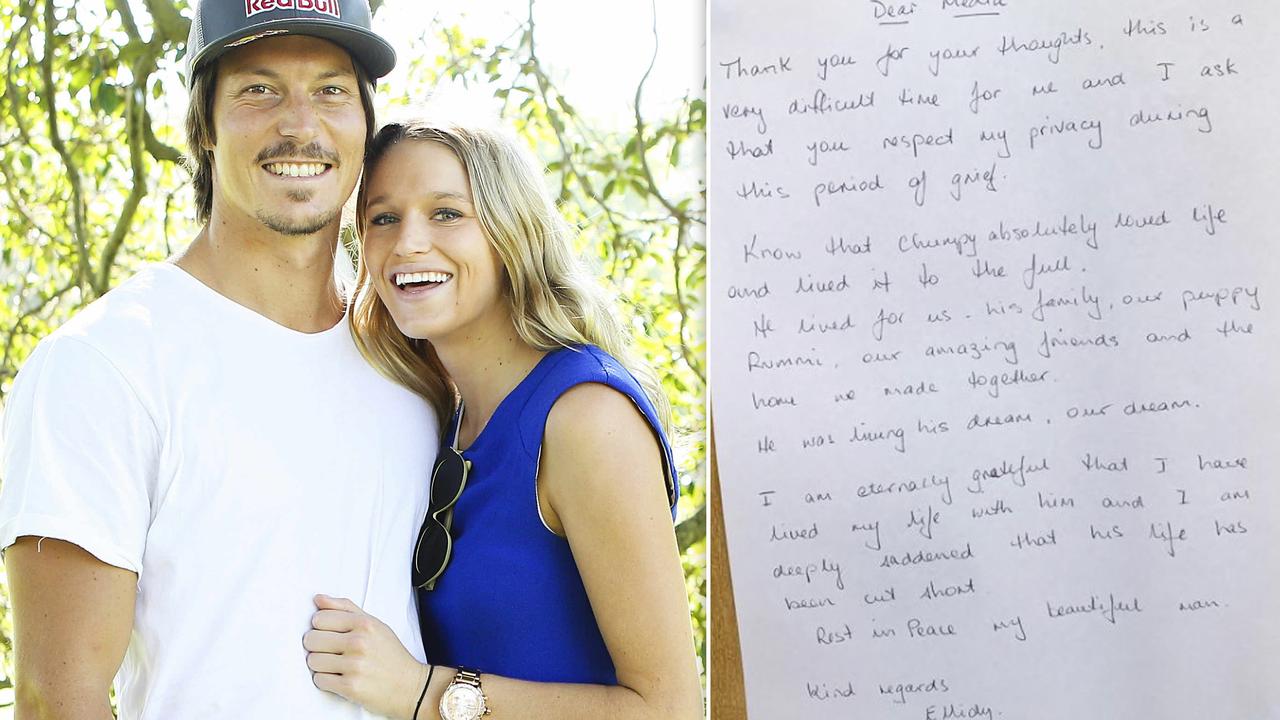 Red Bull
Dear Media
Thank you for your thoughts, this is a
very difficult time for me and I ask
that you respect my privacy during
this period of grief.
Know that Chumpy absolutely loved life
and lived it to the full.
He lived for us - his family, our puppy
Rummi, our amazing friends and the
home we made together.
He was living his dream, our dream.
I am eternally grateful that I have
lived my life with him and I am
deeply saddened that his life has
been cut short
Rest in Peace my beautiful man.
kind regards
Ellidy.